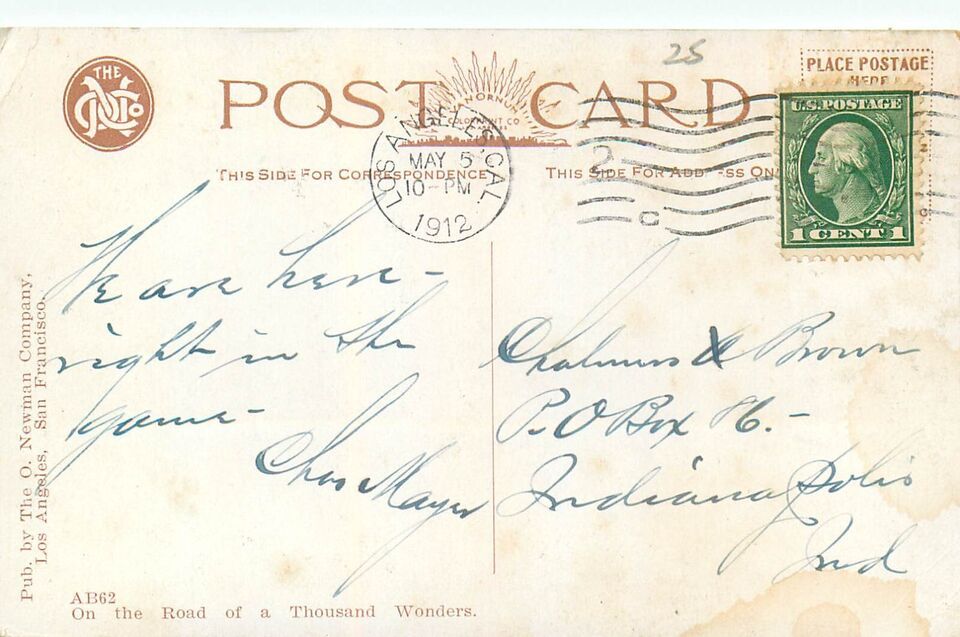 25
THE
PLACE POSTAGE
HERE
POST CARD
VAN ORNUM
COLORPRINT CO
U.S. POSTAGE
1 CENT 1
LOS ANGELES, CAL.
MAY 5
10-PM
1912
2
C
THIS SIDE FOR CORRESPONDENCE
THIS SIDE FOR ADD SS ON
We are here -
right in the
game -
Chas Mayer
Chalmers & Brown
P.O Box 76. -
Indianapolis
Ind
Pub. by The O. Newman Company,
Los Angeles, San Francisco.
AB62
On the Road of a Thousand Wonders.